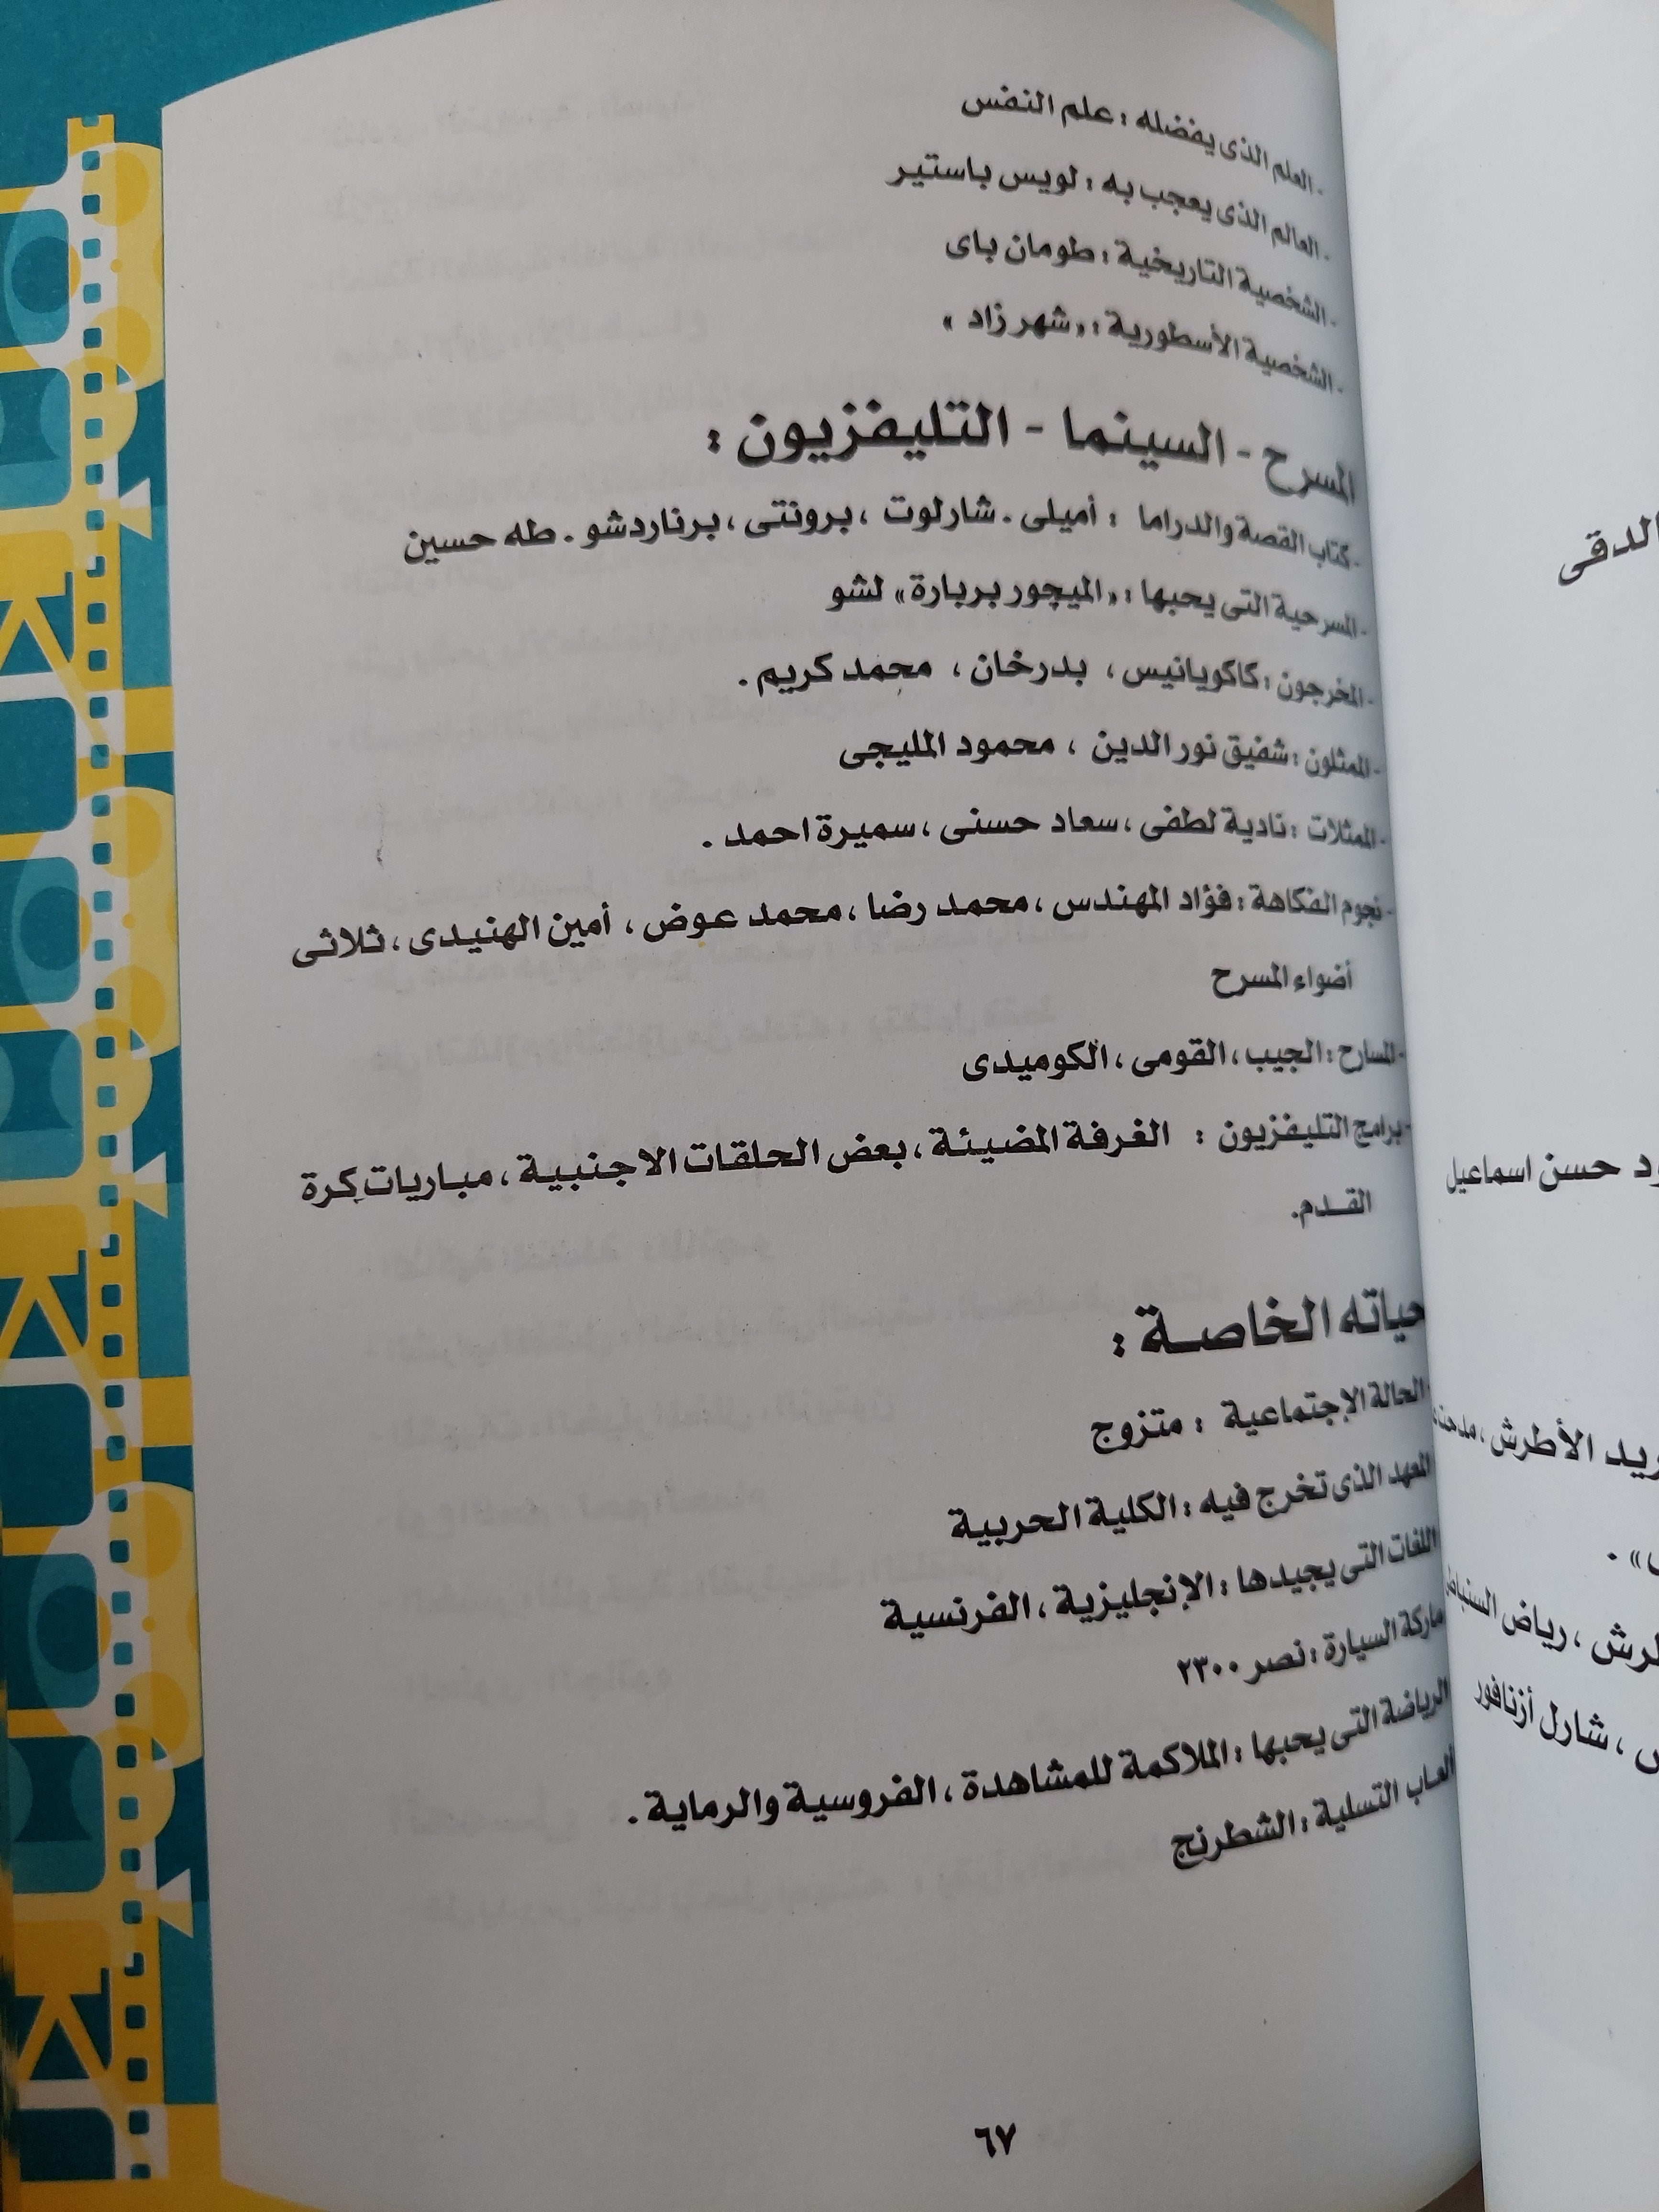 - العلم الذى يفضله : علم النفس
- العالم الذى يعجب به : لويس باستير
- الشخصية التاريخية : طومان باى
- الشخصية الأسطورية : «شهر زاد »
المسرح - السينما - التليفزيون :
- كتاب القصة والدراما : أميلى . شارلوت ، برونتى ، برناردشو . طه حسين
- المسرحية التى يحبها : «الميجور بربارة» لشو
- المخرجون : كاكويانيس ، بدرخان ، محمد كريم .
- الممثلون : شفيق نور الدين ، محمود المليجى
- الممثلات : نادية لطفى ، سعاد حسنى ، سميرة احمد .
- نجوم الفكاهة : فؤاد المهندس ، محمد رضا ، محمد عوض ، أمين الهنيدى ، ثلاثى
أضواء المسرح
- المسارح : الجيب ، القومى ، الكوميدى
- برامج التليفزيون : الغرفة المضيئة ، بعض الحلقات الاجنبية ، مباريات كرة
القدم.
حياته الخاصة :
الحالة الإجتماعية : متزوج
المعهد الذى تخرج فيه : الكلية الحربية
اللغات التى يجيدها : الإنجليزية ، الفرنسية
ماركة السيارة : نصر ٢٣٠٠
الرياضة التى يحبها : الملاكمة للمشاهدة ، الفروسية والرماية .
ألعاب التسلية : الشطرنج
٦٧
الدقى
حسن اسماعيل
الأطرش ،
، رياض
، شارل أزنافور